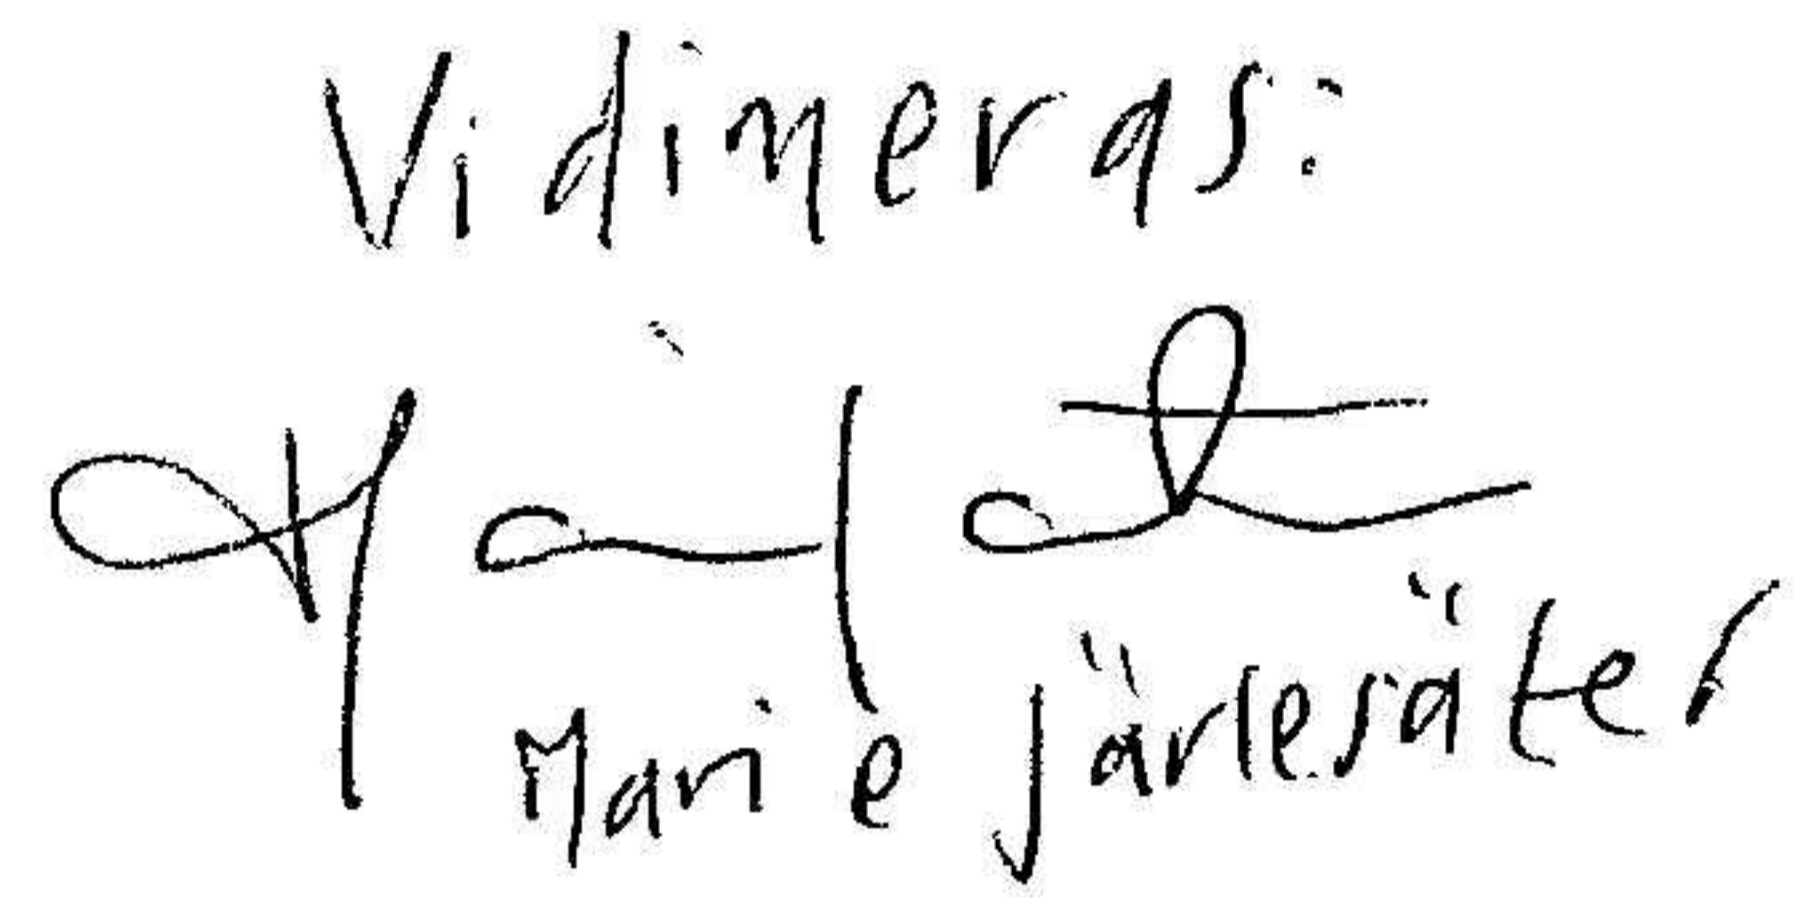 Vidimeras:
Marie Järlesäter